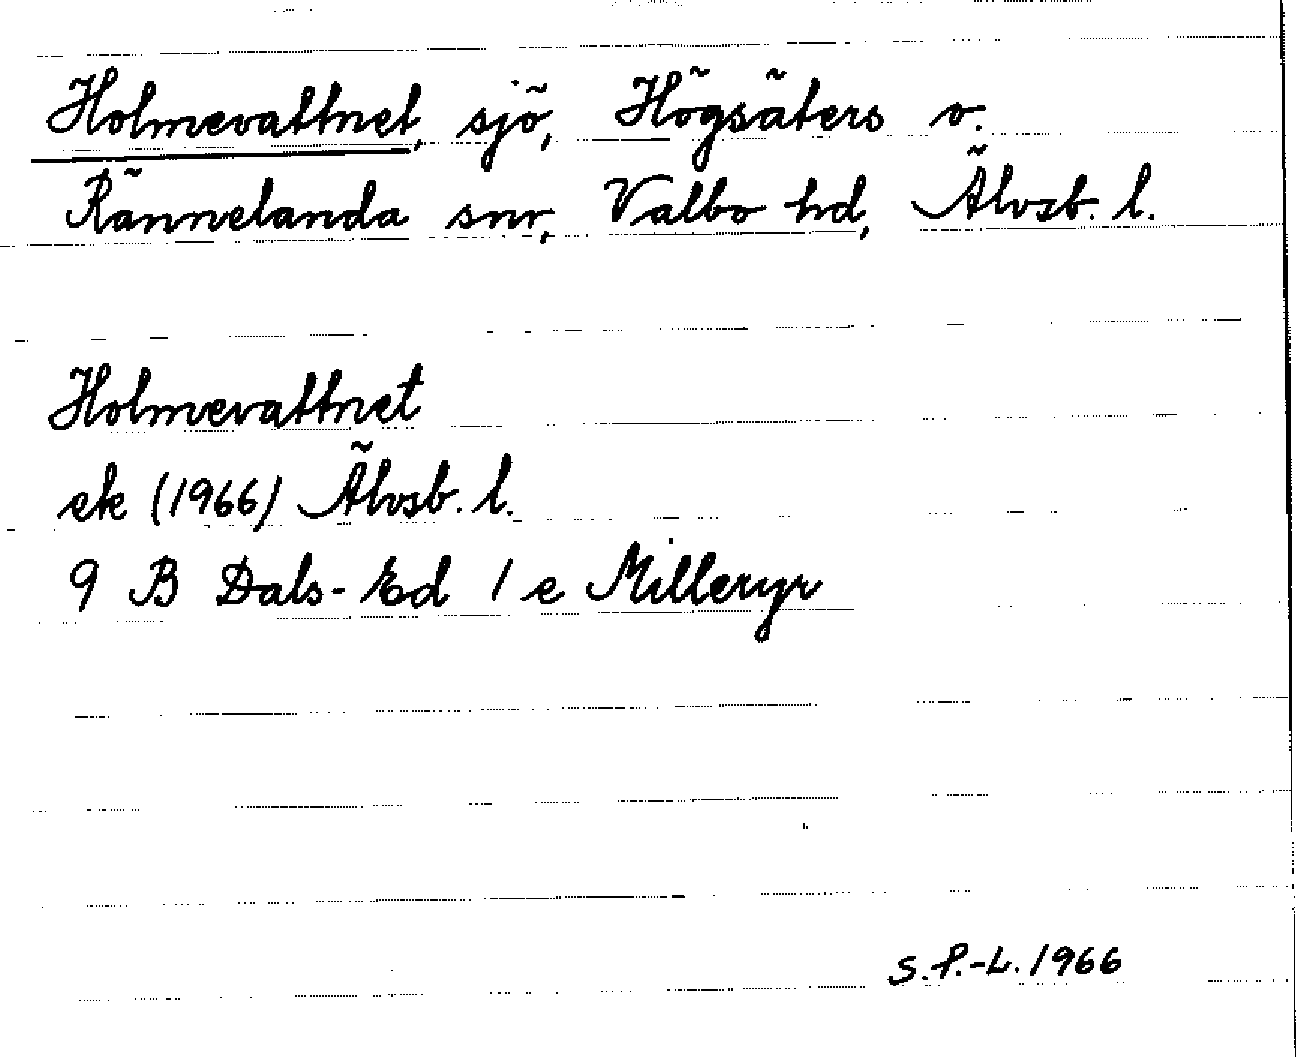 Holmevattnet, sjö, Högsäters o.
Rännelanda snr, Valbo hd, Älvsb. l.
Holmevattnet
ek (1966) Älvsb. l.
9 B Dals-Ed 1 e Milleryr
S.P.-L. 1966